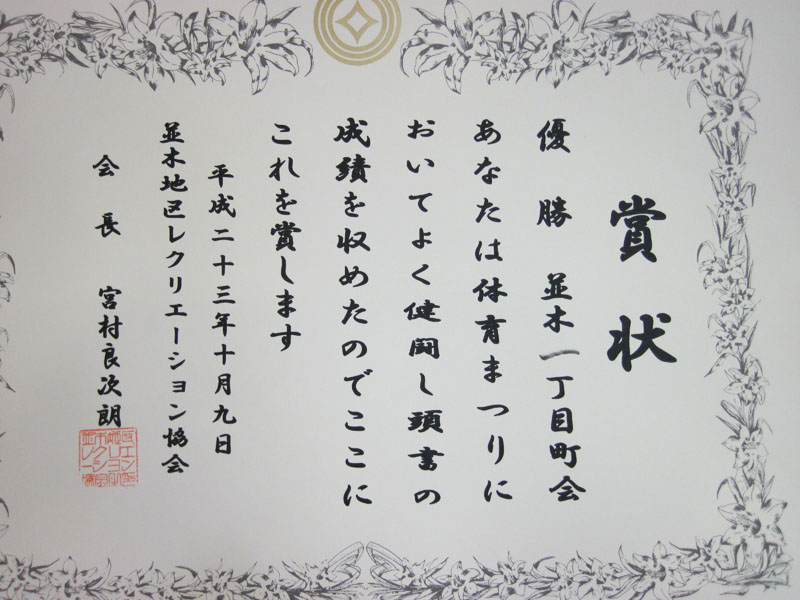 賞状
優勝 並木一丁目町会
あなたは体育まつりに
おいてよく健闘し頭書の
成績を収めたのでここに
これを賞します
平成二十三年十月九日
並木地区レクリエーション協会
会長 宮村良次朗